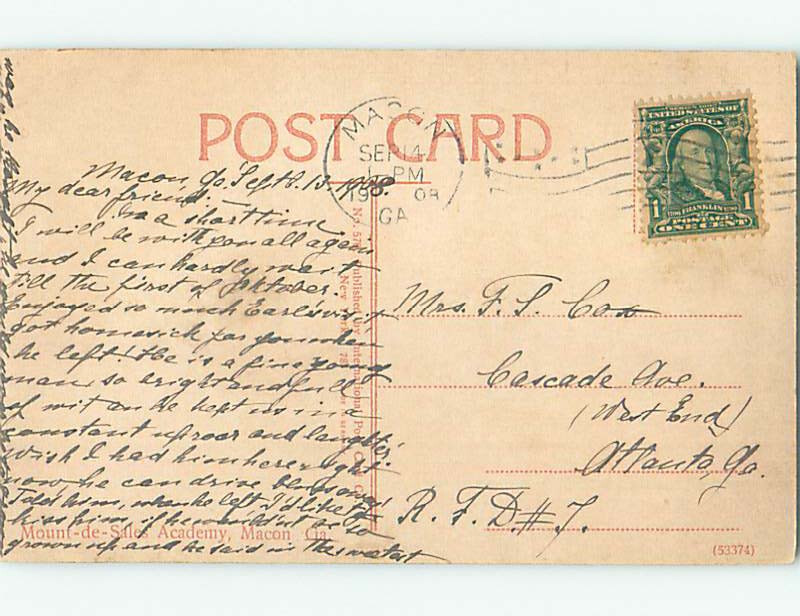 POST CARD
MACON
SEP 14
PM
1908
GA
UNITED STATES OF
AMERICA
1 FRANKLIN 1
POSTAGE
ONE CENT
Macon, Ga. Sept. 13, 1908.
My dear friend:
In a short time
I will be with you all again
and I can hardly wait
till the first of Oktober.
Enjoyed so much Earl's visit
got homesick for you when
he left! He is a fine young
man, so bright and full
of wit and he kept us in a
constant uproar and laughter.
Wish I had him here right
now, he can drive blues away!
Told him, when he left, I'd like to
kiss him if he wouldn't be so
grown up and he said in the sweetest
Mrs. F. S. Cox
Cascade Ave.
(West End)
Atlanta, Ga.
R. F. D. # 7.
Published by International Post Card
New York
Mount-de-Sales Academy, Macon Ga.
(53374)